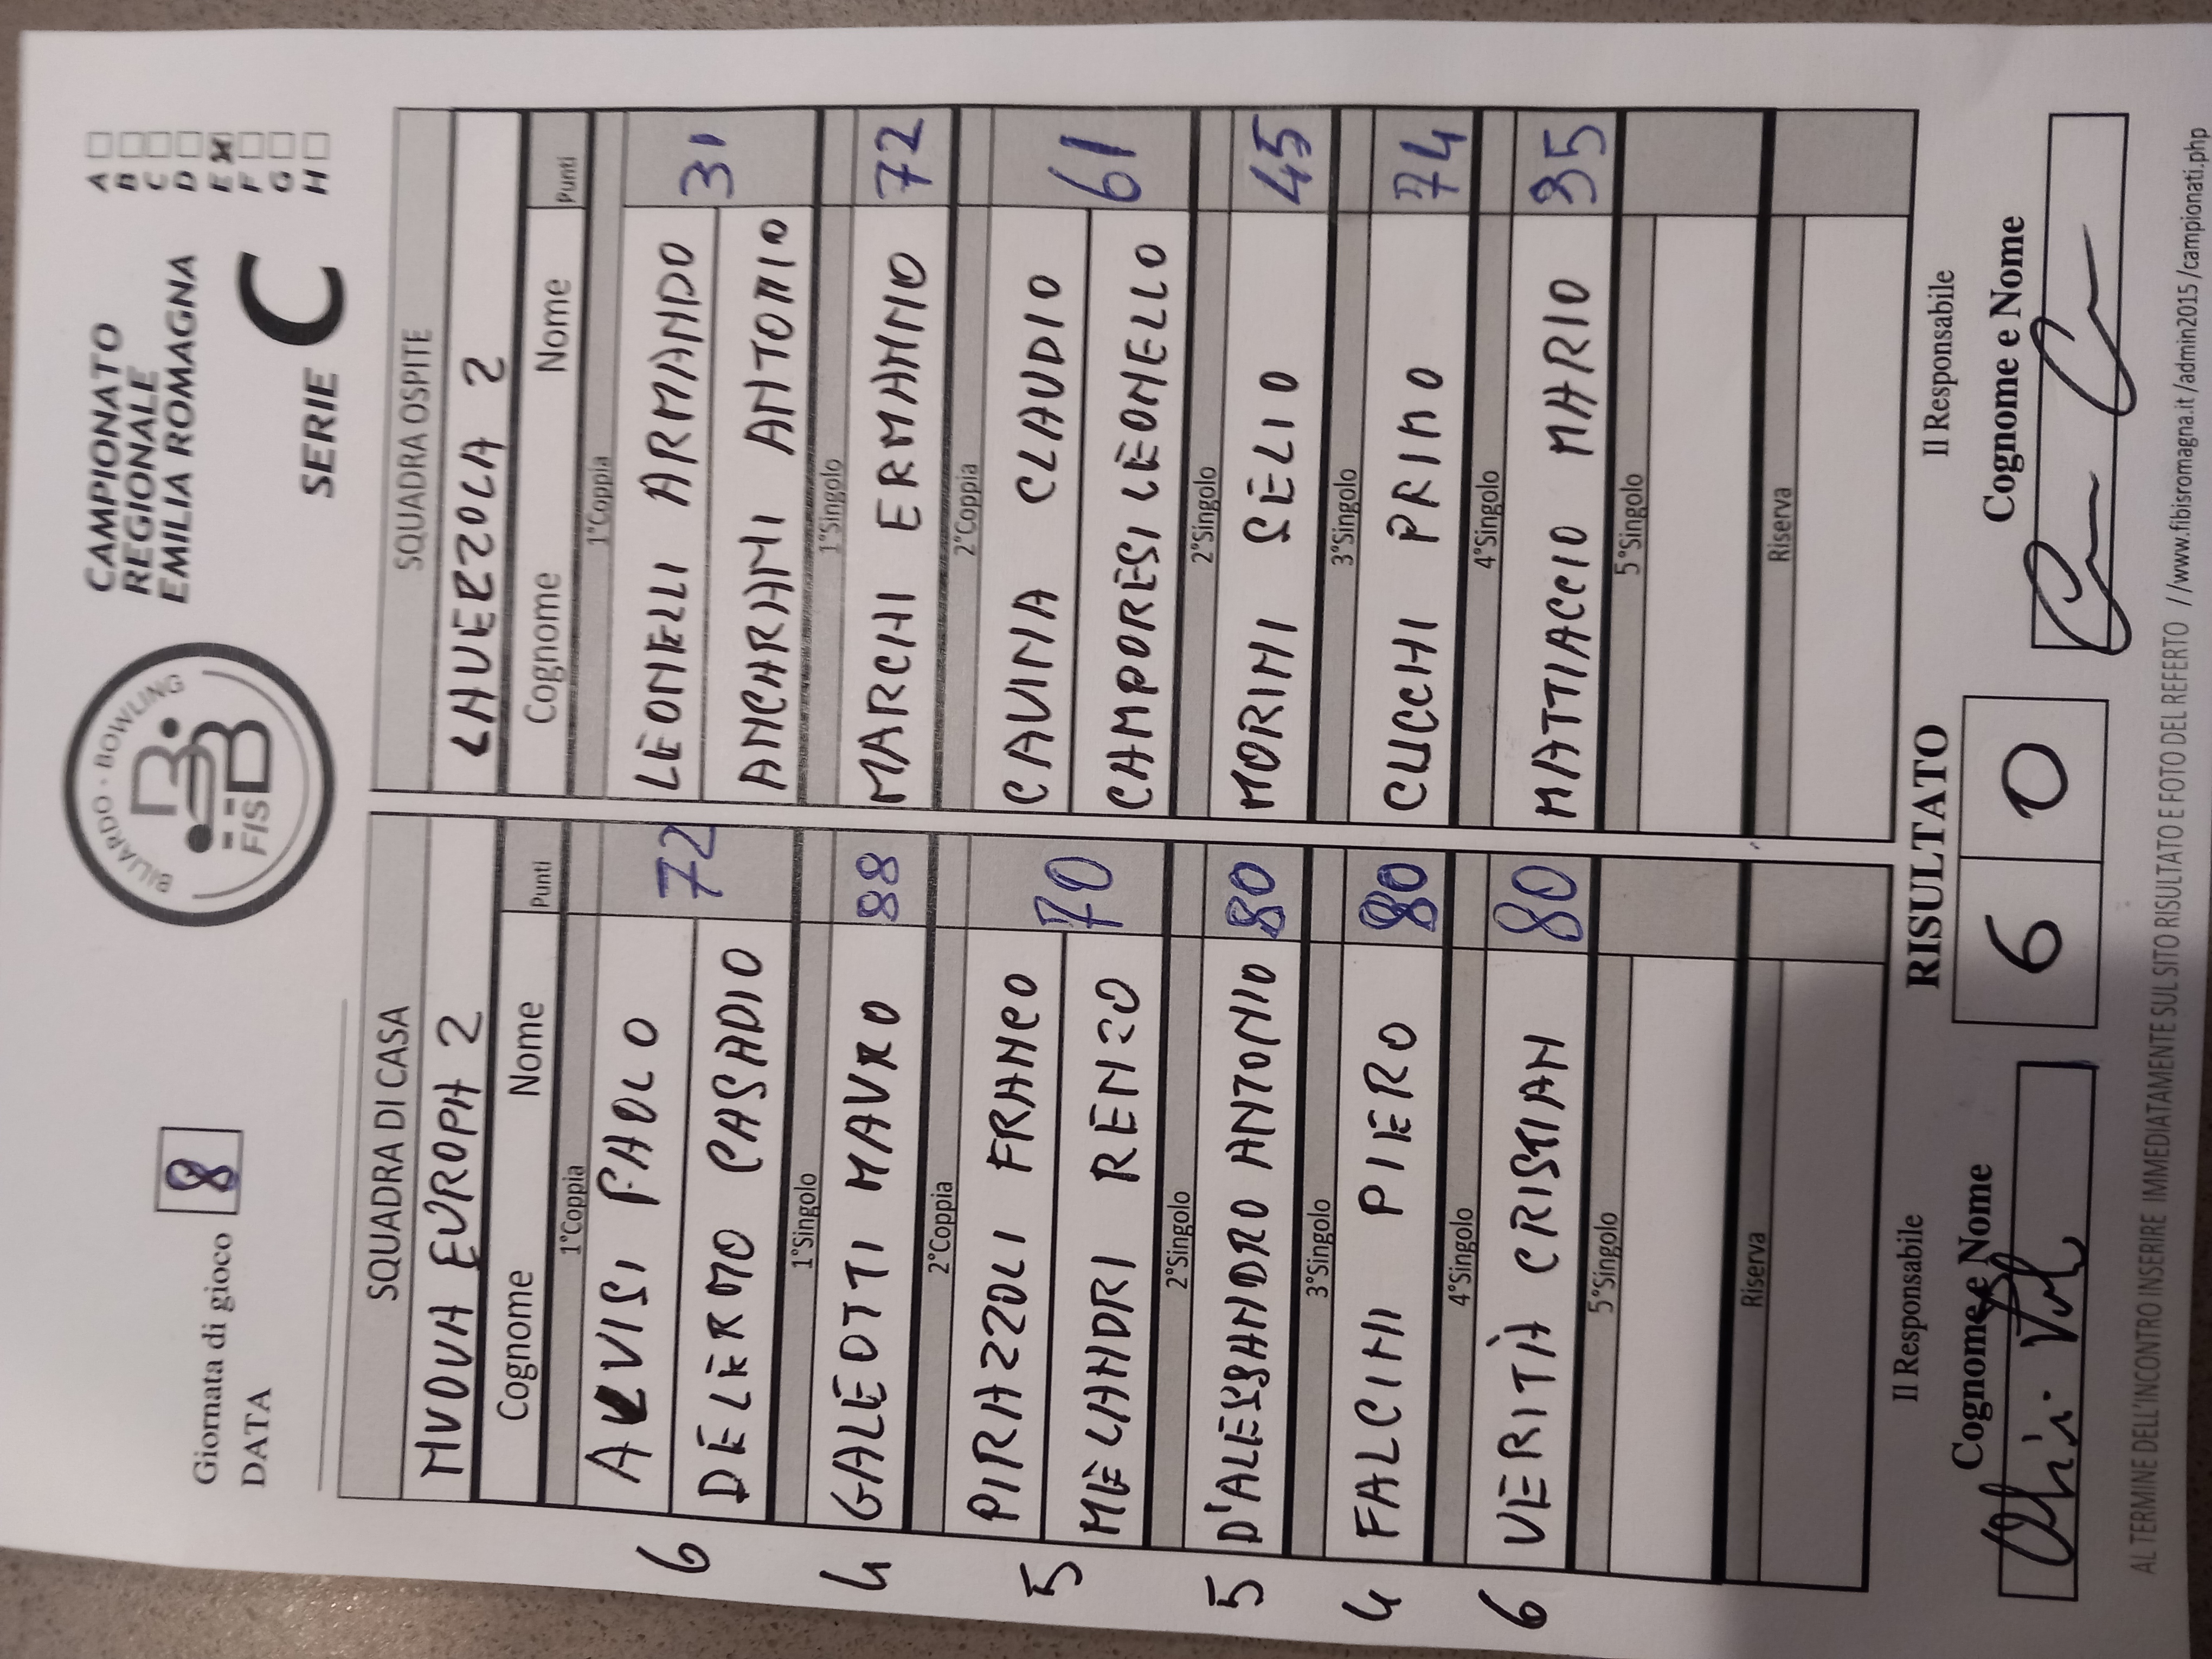 Giornata di gioco 8
DATA
BILIARDO - BOWLING
FISBB
CAMPIONATO
REGIONALE
EMILIA ROMAGNA
SERIE C
A
B
C
D
E X
F
G
H
SQUADRA DI CASA
NUOVA EUROPA 2
Cognome Nome Punti
1°Coppia
6 ALVISI PAOLO 72
DELERMO CASADIO
1°Singolo
4 GALEOTTI MAURO 88
2°Coppia
5 PIRAZZOLI FRANCO 70
MELANDRI RENZO
2°Singolo
5 D'ALESSANDRO ANTONIO 80
3°Singolo
4 FALCINI PIERO 80
4°Singolo
6 VERITÀ CRISTIAN 80
5°Singolo
Riserva
SQUADRA OSPITE
LAVEZZOLA 2
Cognome Nome Punti
1°Coppia
LEONELLI ARMANDO 31
ANCARANI ANTONIO
1°Singolo
MARCHI ERMANNO 72
2°Coppia
CAVINA CLAUDIO 61
CAMPORESI LEONELLO
2°Singolo
MORINI SELIO 45
3°Singolo
CUCCHI PRIMO 74
4°Singolo
MATTIACCIO MARIO 35
5°Singolo
Riserva
Il Responsabile
Cognome e Nome
RISULTATO
6 0
Il Responsabile
Cognome e Nome
AL TERMINE DELL'INCONTRO INSERIRE IMMEDIATAMENTE SUL SITO RISULTATO E FOTO DEL REFERTO //www.fibisromagna.it /admin2015 /campionati.php